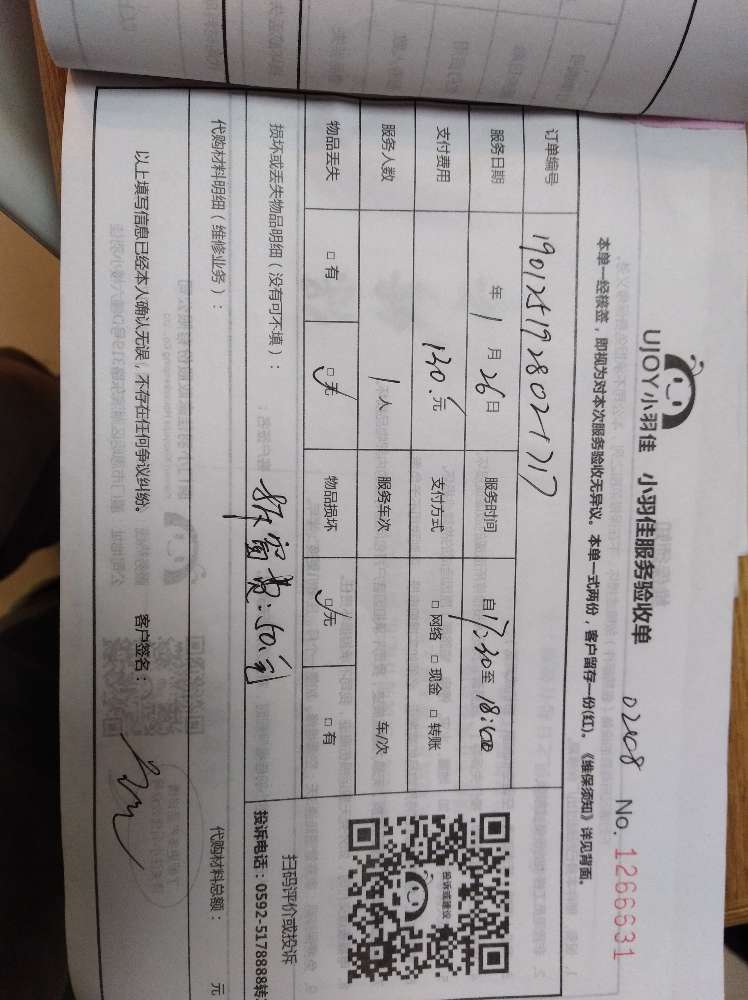 UJOY小羽佳 小羽佳服务验收单
0208 No. 1266631
本单一经核签，即视为对本次服务验收无异议。本单一式两份，客户留存一份(红)。《维保须知》详见背面。
订单编号 1901251928021717
服务日期 年 1 月 26 日 服务时间 自 17:30 至 18:00
支付费用 130.元 支付方式 □ 网络 □ 现金 □ 转账
服务人数 1 人 服务车次 车/次
物品丢失 □ 有 □ 无 物品损坏 □ 无 □ 有
损坏或丢失物品明细（没有可不填）：
代购材料明细（维修业务）：
代购材料总额： 元
以上填写信息已经本人确认无误，不存在任何争议纠纷。 客户签名：
投诉或建议
扫码评价或投诉
投诉电话：0592-5178888转